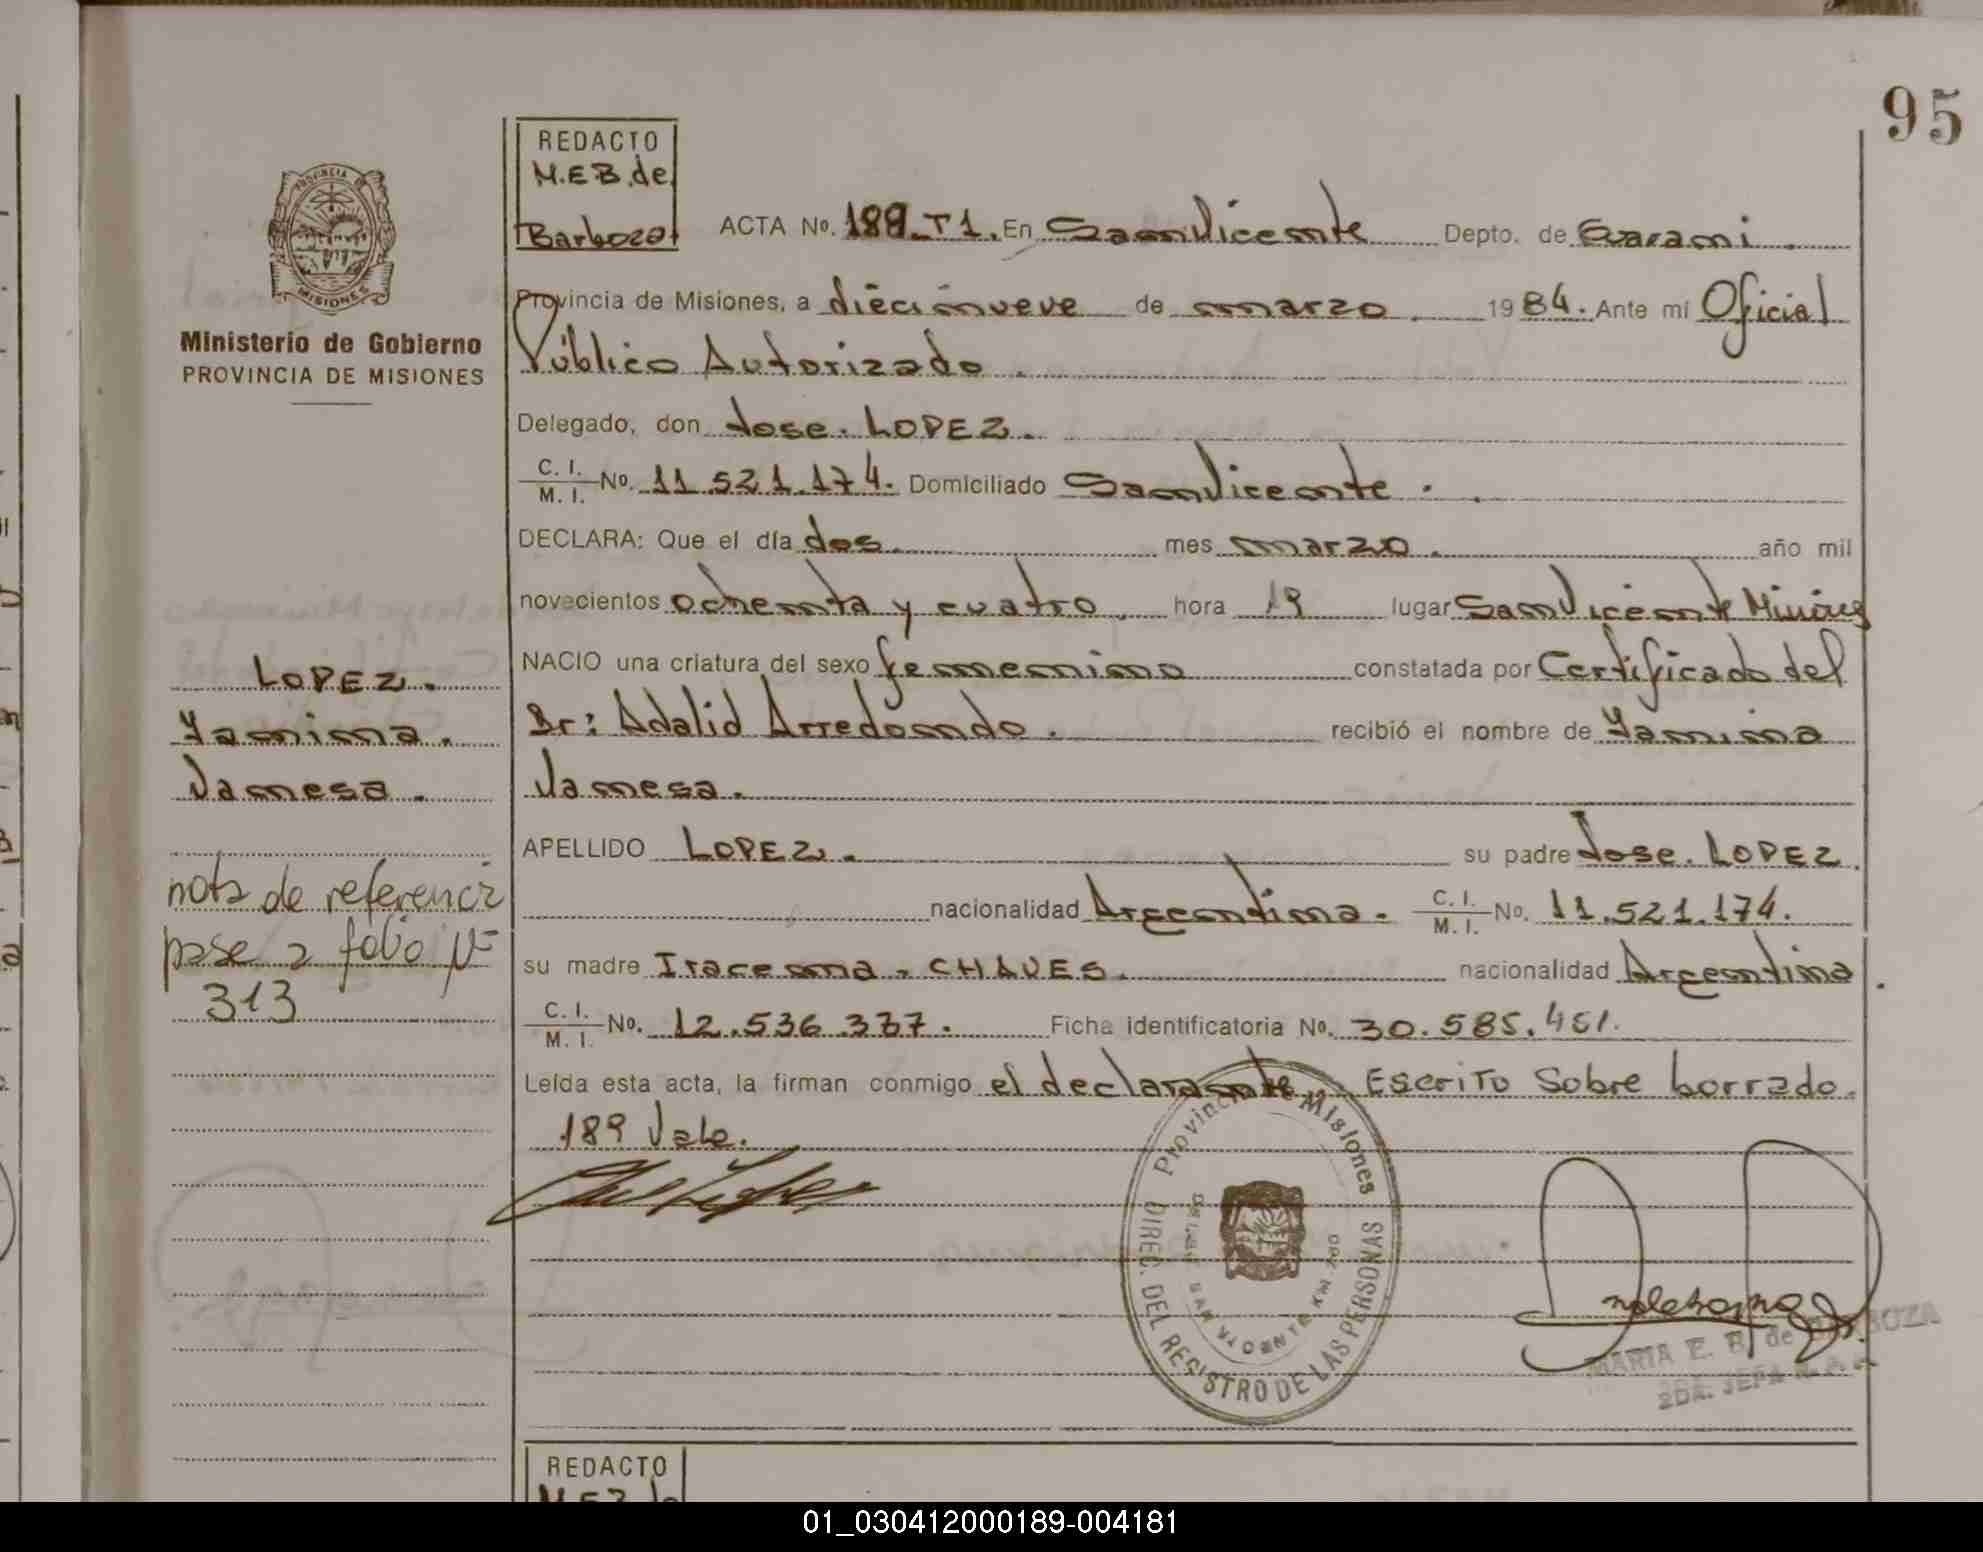 95
REDACTO
M.E.B. de
Barboza
PROVINCIA DE
MISIONES
Ministerio de Gobierno
PROVINCIA DE MISIONES
ACTA No. 189_T1. En San Vicente Depto. de Guarani.
Provincia de Misiones, a diecinueve de marzo. 1984. Ante mi Oficial
Público Autorizado.
Delegado, don Jose. LOPEZ.
C. I.
M. I. No. 11.521.174. Domiciliado San Vicente.
DECLARA: Que el día dos. mes marzo. año mil
novecientos ochenta y cuatro, hora 19 lugar San Vicente Misiones
NACIO una criatura del sexo femenino constatada por Certificado del
Dr: Adalid Arredondo. recibió el nombre de Yanina
Vanesa.
APELLIDO LOPEZ. su padre Jose. LOPEZ.
nacionalidad Argentina. C. I.
M. I. No. 11.521.174.
su madre Iracema. CHAVES. nacionalidad Argentina.
C. I.
M. I. No. 12.536.337. Ficha identificatoria No. 30.585.451.
Leída esta acta, la firman conmigo el declarante. Escrito Sobre borrado.
189 Vale.
LOPEZ.
Yanina.
Vanesa.
nota de referencia
pase a folio Nº
313
Provincia de Misiones
DIREC. DEL REGISTRO DE LAS PERSONAS
SAN VICENTE KM.
MARIA E. B. de BARBOZA
2DA. JEFA
REDACTO
M.E.B. de
01_030412000189-004181